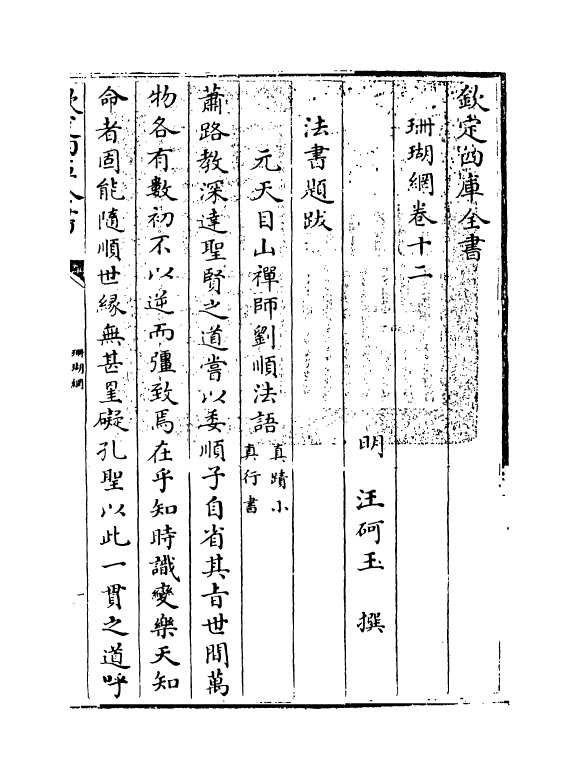 欽定四庫全書
珊瑚網卷十二
明 汪砢玉 撰
法書題跋
元天目山禪師劉順法語真蹟小真行書
蕭路教深達聖賢之道嘗以委順子自省其旨世間萬
物各有數初不以逆而彊致焉在乎知時識變樂天知
命者固能隨順世緣無甚罣礙孔聖以此一貫之道呼
珊瑚網